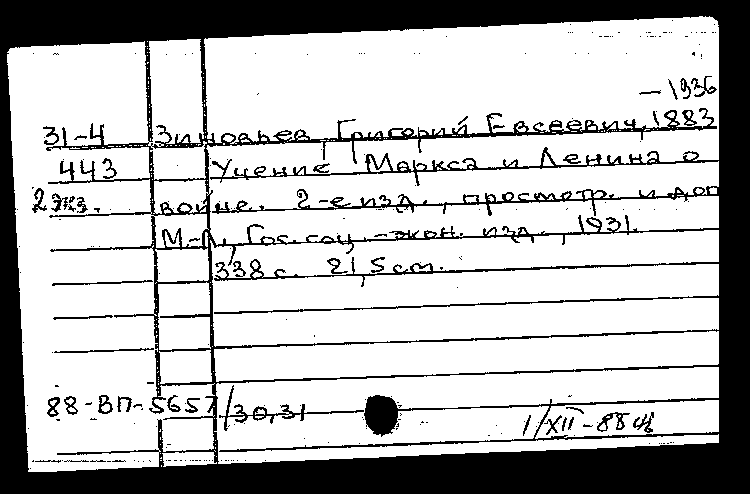 — 1936
31-4 Зиновьев, Григорий Евсеевич, 1883
443 Учение Маркса и Ленина о
2 экз. войне. 2-е изд., просмотр. и доп
М-Л, Гос. соц.-экон. изд., 1931.
338 с. 21,5 см.
88-ВП-5657/30,31
1/XII-88